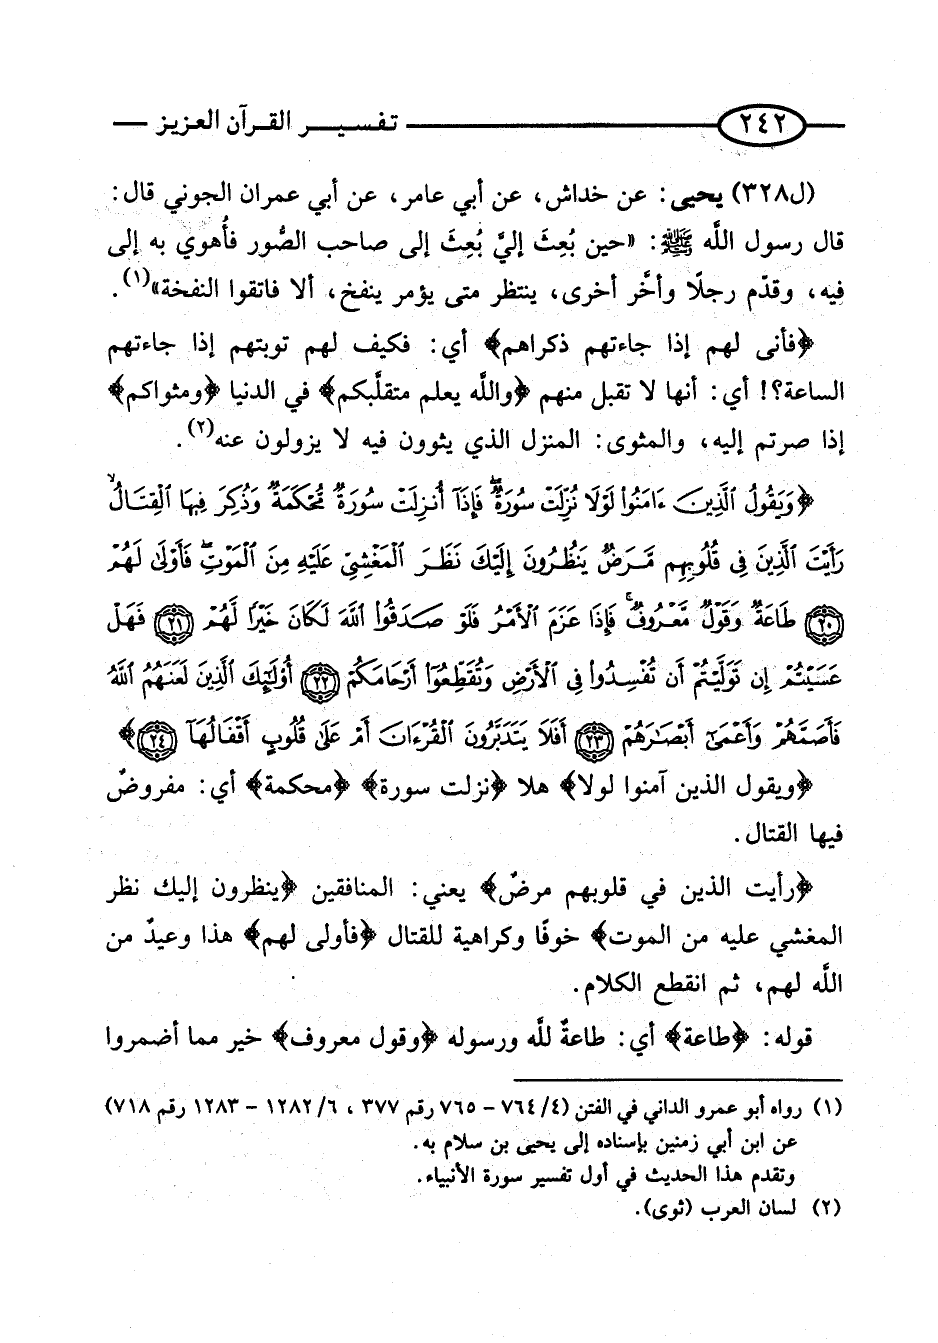 ٢٤٢ تفسير القرآن العزيز
(ل٣٢٨) يحيى: عن خداش، عن أبي عامر، عن أبي عمران الجوني قال:
قال رسول اللَّه ﷺ: «حين بُعِثَ إليَّ بُعِثَ إلى صاحب الصُّور فأُهوي به إلى
فيه، وقدّم رجلًا وأخَّر أخرى، ينتظر متى يؤمر ينفخ، ألا فاتقوا النفخة»(١).
﴿فأنى لهم إذا جاءتهم ذكراهم﴾ أي: فكيف لهم توبتهم إذا جاءتهم
الساعة؟! أي: أنها لا تقبل منهم ﴿واللَّه يعلم متقلَّبكم﴾ في الدنيا ﴿ومثواكم﴾
إذا صرتم إليه، والمثوى: المنزل الذي يثوون فيه لا يزولون عنه(٢).
﴿وَيَقُولُ ٱلَّذِينَ ءَامَنُوا۟ لَوْلَا نُزِّلَتْ سُورَةٌۖ فَإِذَآ أُنزِلَتْ سُورَةٌ مُّحْكَمَةٌ وَذُكِرَ فِيهَا ٱلْقِتَالُۙ
رَأَيْتَ ٱلَّذِينَ فِى قُلُوبِهِم مَّرَضٌ يَنظُرُونَ إِلَيْكَ نَظَرَ ٱلْمَغْشِىِّ عَلَيْهِ مِنَ ٱلْمَوْتِۖ فَأَوْلَىٰ لَهُمْ
﴿٢٠﴾ طَاعَةٌ وَقَوْلٌ مَّعْرُوفٌۚ فَإِذَا عَزَمَ ٱلْأَمْرُ فَلَوْ صَدَقُوا۟ ٱللَّهَ لَكَانَ خَيْرًا لَّهُمْ ﴿٢١﴾ فَهَلْ
عَسَيْتُمْ إِن تَوَلَّيْتُمْ أَن تُفْسِدُوا۟ فِى ٱلْأَرْضِ وَتُقَطِّعُوٓا۟ أَرْحَامَكُمْ ﴿٢٢﴾ أُو۟لَٰٓئِكَ ٱلَّذِينَ لَعَنَهُمُ ٱللَّهُ
فَأَصَمَّهُمْ وَأَعْمَىٰٓ أَبْصَٰرَهُمْ ﴿٢٣﴾ أَفَلَا يَتَدَبَّرُونَ ٱلْقُرْءَانَ أَمْ عَلَىٰ قُلُوبٍ أَقْفَالُهَآ ﴿٢٤﴾﴾
﴿ويقول الذين آمنوا لولا﴾ هلا ﴿نزلت سورة﴾ ﴿محكمة﴾ أي: مفروضٌ
فيها القتال.
﴿رأيت الذين في قلوبهم مرضٌ﴾ يعني: المنافقين ﴿ينظرون إليك نظر
المغشي عليه من الموت﴾ خوفًا وكراهية للقتال ﴿فأولى لهم﴾ هذا وعيدٌ من
اللَّه لهم، ثم انقطع الكلام.
قوله: ﴿طاعة﴾ أي: طاعةٌ للَّه ورسوله ﴿وقول معروف﴾ خير مما أضمروا
(١) رواه أبو عمرو الداني في الفتن (٤/ ٧٦٤ - ٧٦٥ رقم ٣٧٧، ٦/ ١٢٨٢ - ١٢٨٣ رقم ٧١٨)
عن ابن أبي زمنين بإسناده إلى يحيى بن سلام به.
وتقدم هذا الحديث في أول تفسير سورة الأنبياء.
(٢) لسان العرب (ثوى).